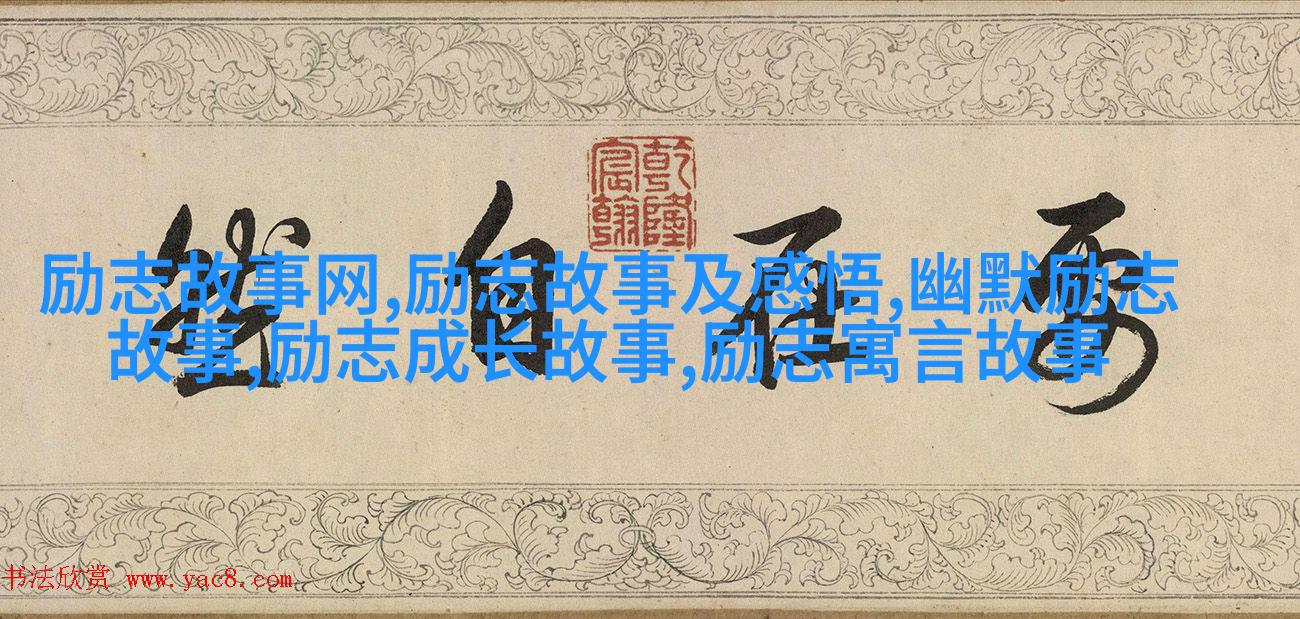 乾隆宸翰
自
励志故事网,励志故事及感悟,幽默励志
故事,励志成长故事,励志寓言故事
书法欣赏 www.yac8.com